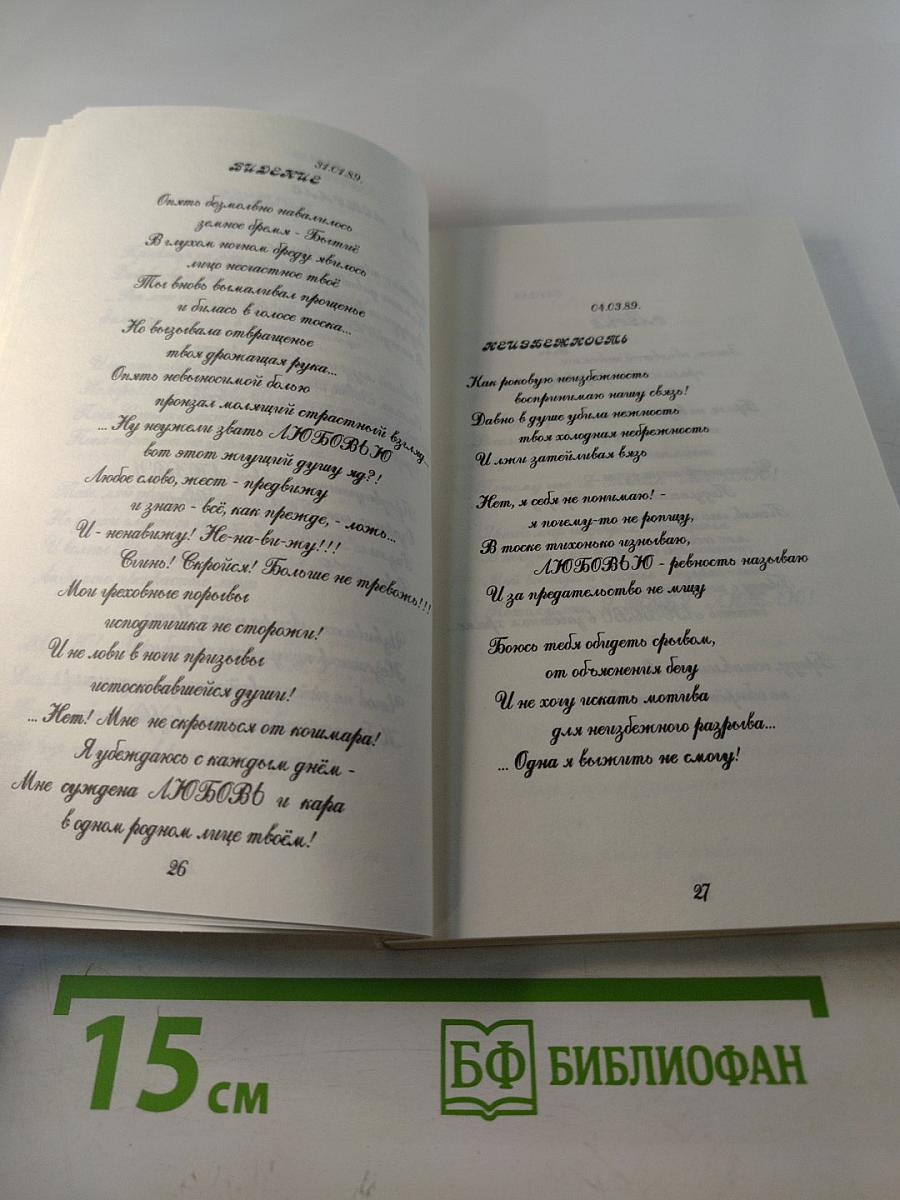 31.01.89.
ВИДЕНИЕ
Опять безмолвно навалилось
земное бремя - Бытиё
В глухом ночном бреду явилось
лицо несчастное твоё
Ты вновь вымаливал прощенье
и билась в голосе тоска...
Но вызывала отвращенье
твоя дрожащая рука...
Опять невыносимой болью
пронзал молящий страстный взгляд...
... Ну неужели звать ЛЮБОВЬЮ
вот этот жгущий душу яд?!
Любое слово, жест - предвижу
и знаю - всё, как прежде, - ложь...
И - ненавижу! Не-на-ви-жу!!!
Сгинь! Скройся! Больше не тревожь!!!
Мои греховные порывы
исподтишка не сторожи!
И не лови в ночи призывы
истосковавшейся души!
... Нет! Мне не скрыться от кошмара!
Я убеждаюсь с каждым днём -
Мне суждена ЛЮБОВЬ и кара
в одном родном лице твоём!
26
04.03.89.
НЕИЗБЕЖНОСТЬ
Как роковую неизбежность
воспринимаю нашу связь!
Давно в душе убила нежность
твоя холодная небрежность
И лжи затейливая вязь
Нет, я себя не понимаю! -
я почему-то не ропщу,
В тоске тихонько изнываю,
ЛЮБОВЬЮ - ревность называю
И за предательство не мщу
Боюсь тебя обидеть срывом,
от объяснения бегу
И не хочу искать мотива
для неизбежного разрыва...
... Одна я выжить не смогу!
27
15 см
БФ БИБЛИОФАН